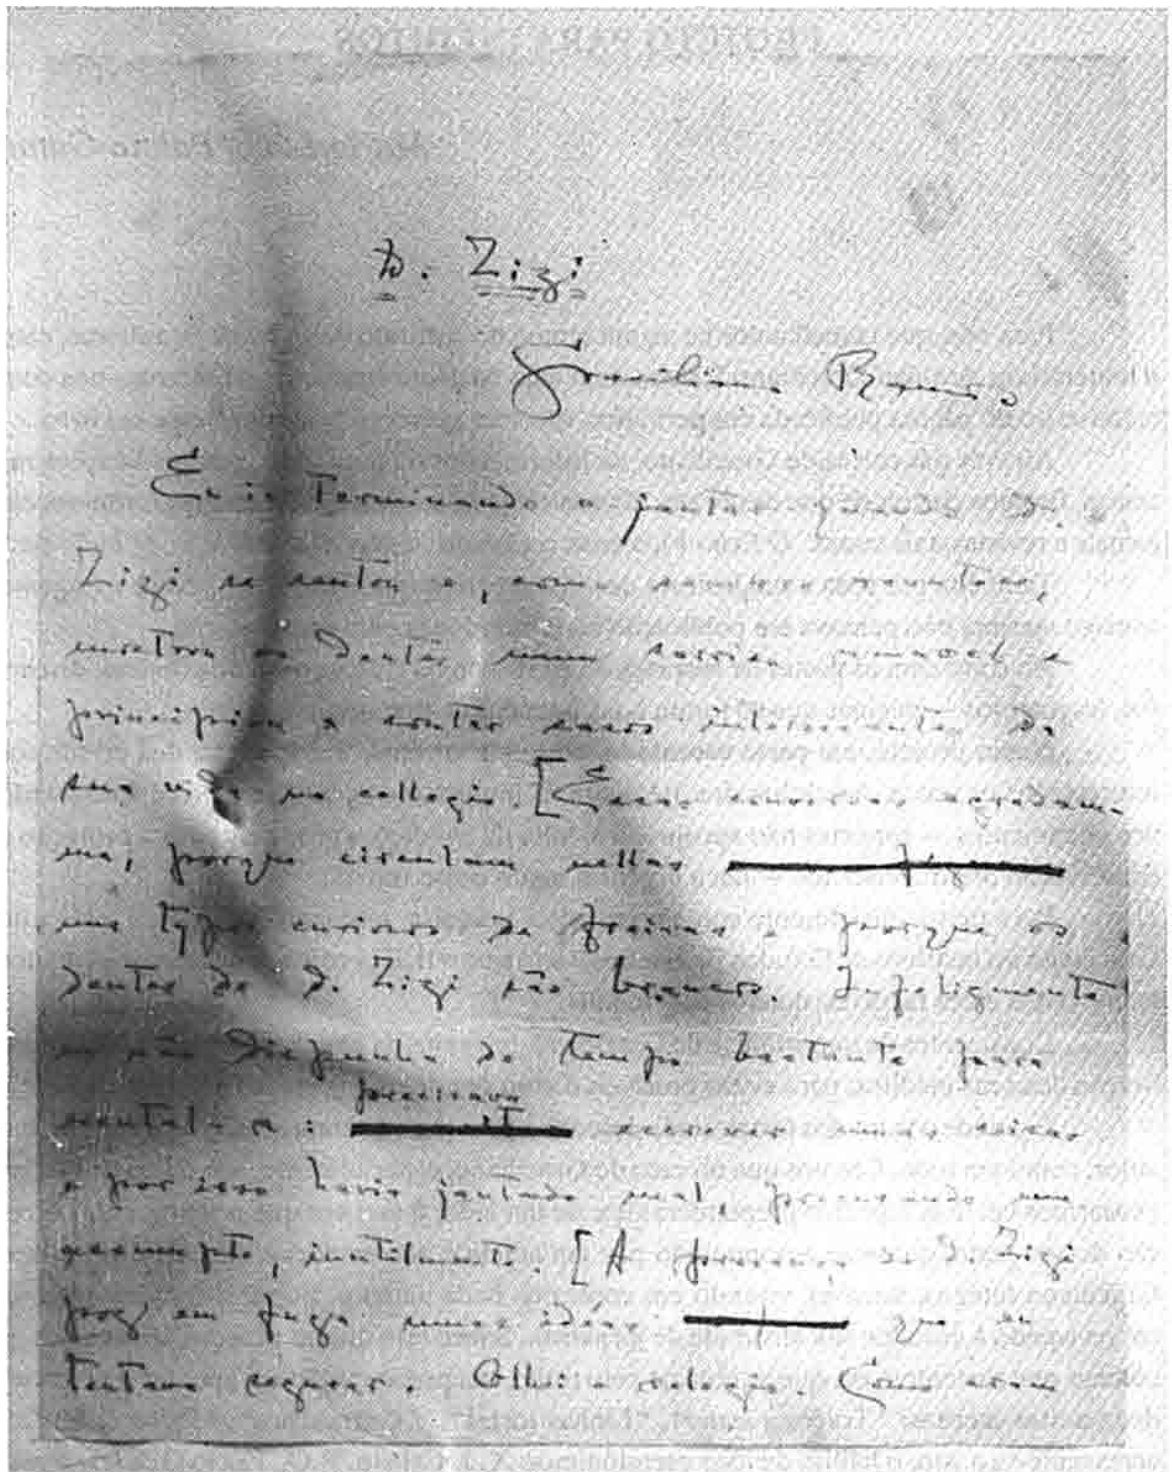 D. Zigi
Graciliano Ramos.
Eu ia terminando o jantar quando d.
Zigi se sentou e, como
mostrou os dentes num sorriso amavel e
principiou a contar casos interessantes de
sua vida no collegio. [Essas conversas agradam-
me, porque circulam nellas
uns typos curiosos de freiras e porque os
dentes de d. Zigi são brancos. Infelizmente
eu não dispunha de tempo bastante para
escutal-a: precisava escrever umas coisas
e por isso havia jantado mal, procurando um
assumpto, inutilmente. [A presença de d. Zigi
poz em fuga umas idéas que eu
tentava segurar. Olhei o relogio. Como eram